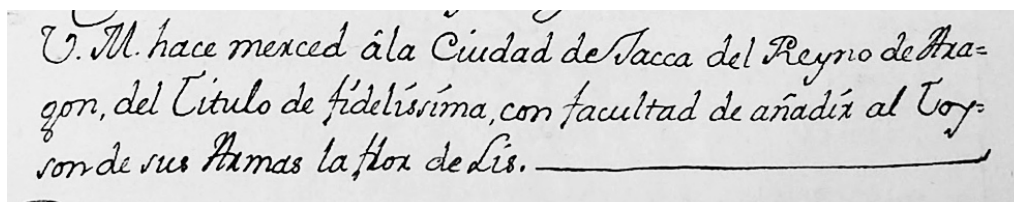 V. M. hace merced âla Ciudad de Jacca del Reyno de Ara=
gon, del Titulo de fidelissíma, con facultad de añadír al Toy=
son de sus Armas la flor de Lis.